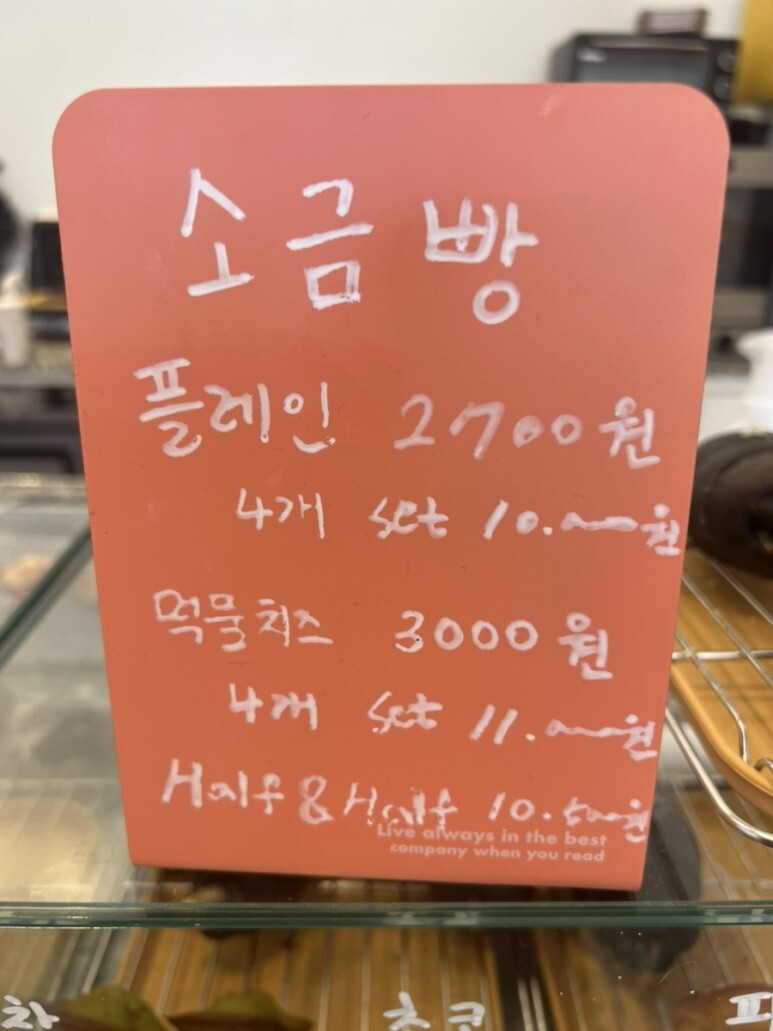 소금빵
플레인 2700원
4개 set 10.000원
먹물치즈 3000원
4개 set 11.000원
Half & Half 10.500원
Live always in the best
company when you read
차
초코